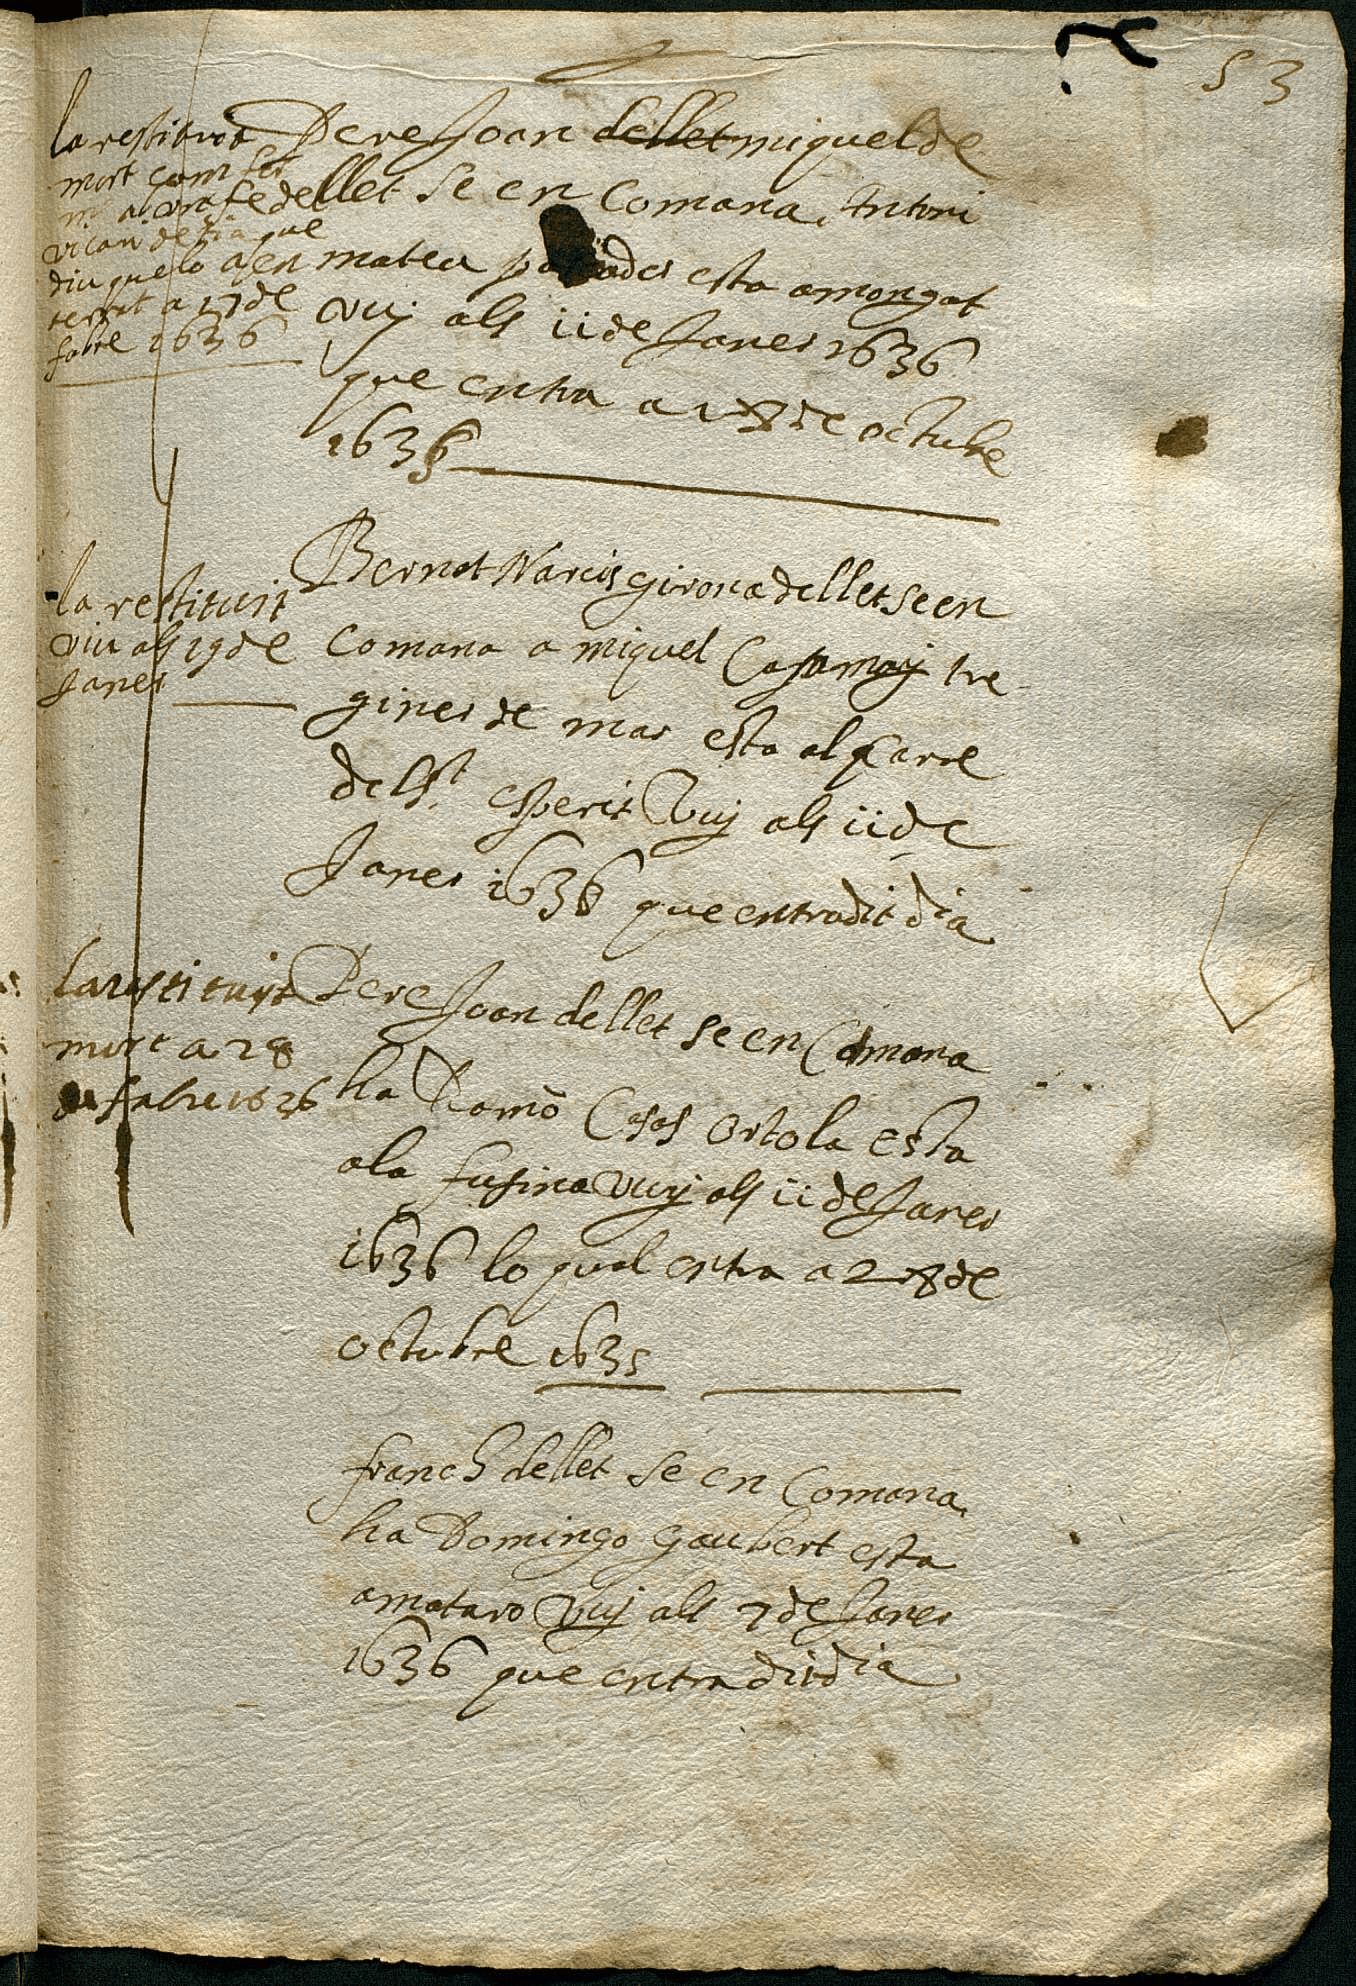 53
la restituit
mort com fer
vicari de que
diu que lo a en
terrat a 17 de
fabre 1636
Pere Joan dellet miquel de
llet se en Comana Antoni
mateu esta a mongat
Vuy als ii de Janer 1636
que entra a 18 de octubre
1635
la restituit
viu als 29 de
Janer
Bernat Narcis girona dellet se en
Comana a miquel Casamay tre
giner de mar esta al Carre
del st. esperit Vuy als ii de
Janer 1636 que entra dit dia
la restituyt
mort a 28
de fabre 1636
Pere Joan dellet se en Comana
ha Ramō Casas ortola esta
a la fusina Vuy als ii de Janer
1636 lo qual entra a 28 de
octubre 1635
franch dellet se en Comana
ha Domingo gaubert esta
a mataro Vuy als 7 de Janer
1636 que entra dit dia